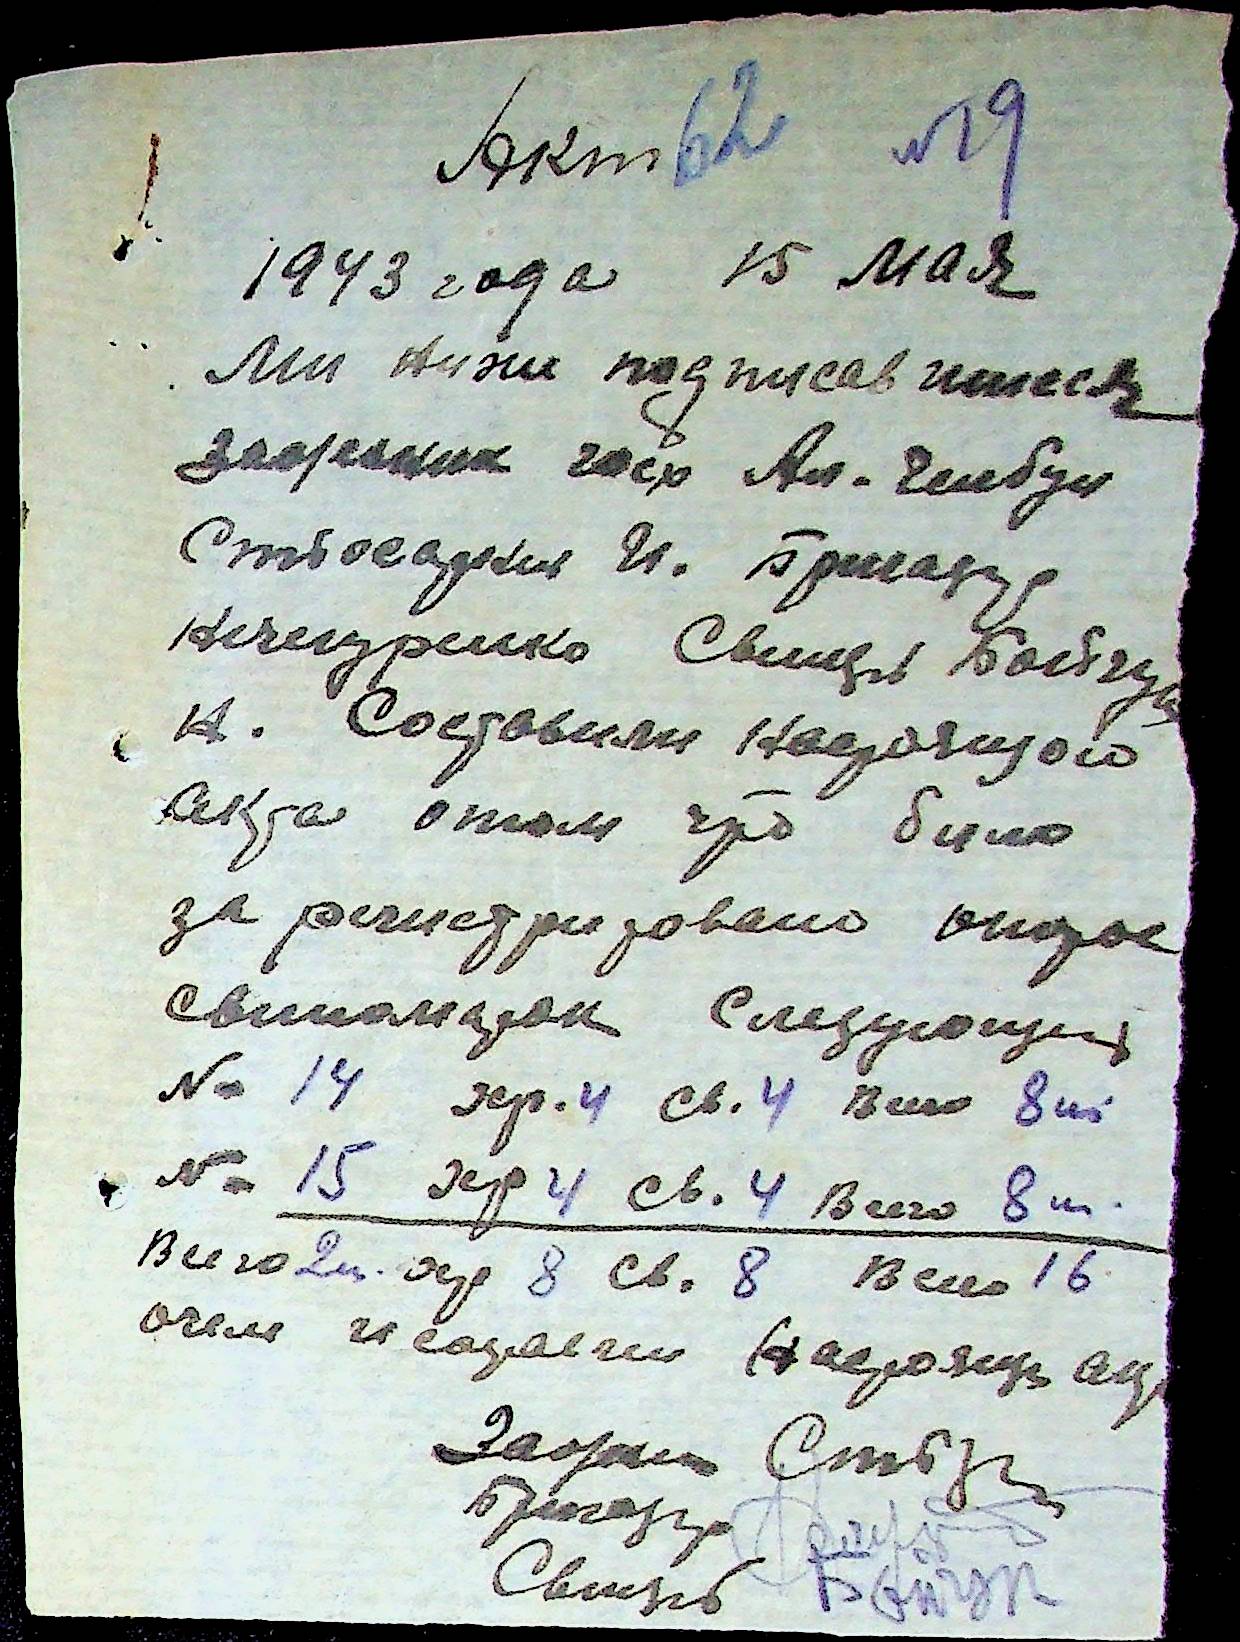 Акт 62 №19
1943 года 15 мая
Ми ниже подписавшиеся
зоотехник госх Ал.
И. Бригадир
Ничипренко Свинарь
Н. Составили настоящого
акта о том что било
за регистрировано опорос
свиноматок следующих
№ 14 хр. 4 св. 4 Всего 8 шт
№ 15 хр 4 св. 4 Всего 8 ш.
Всего 2 ш. хр 8 св. 8 Всего 16
очем и составили настоящ акт
Зоотехник
Бригадир
Свинарь